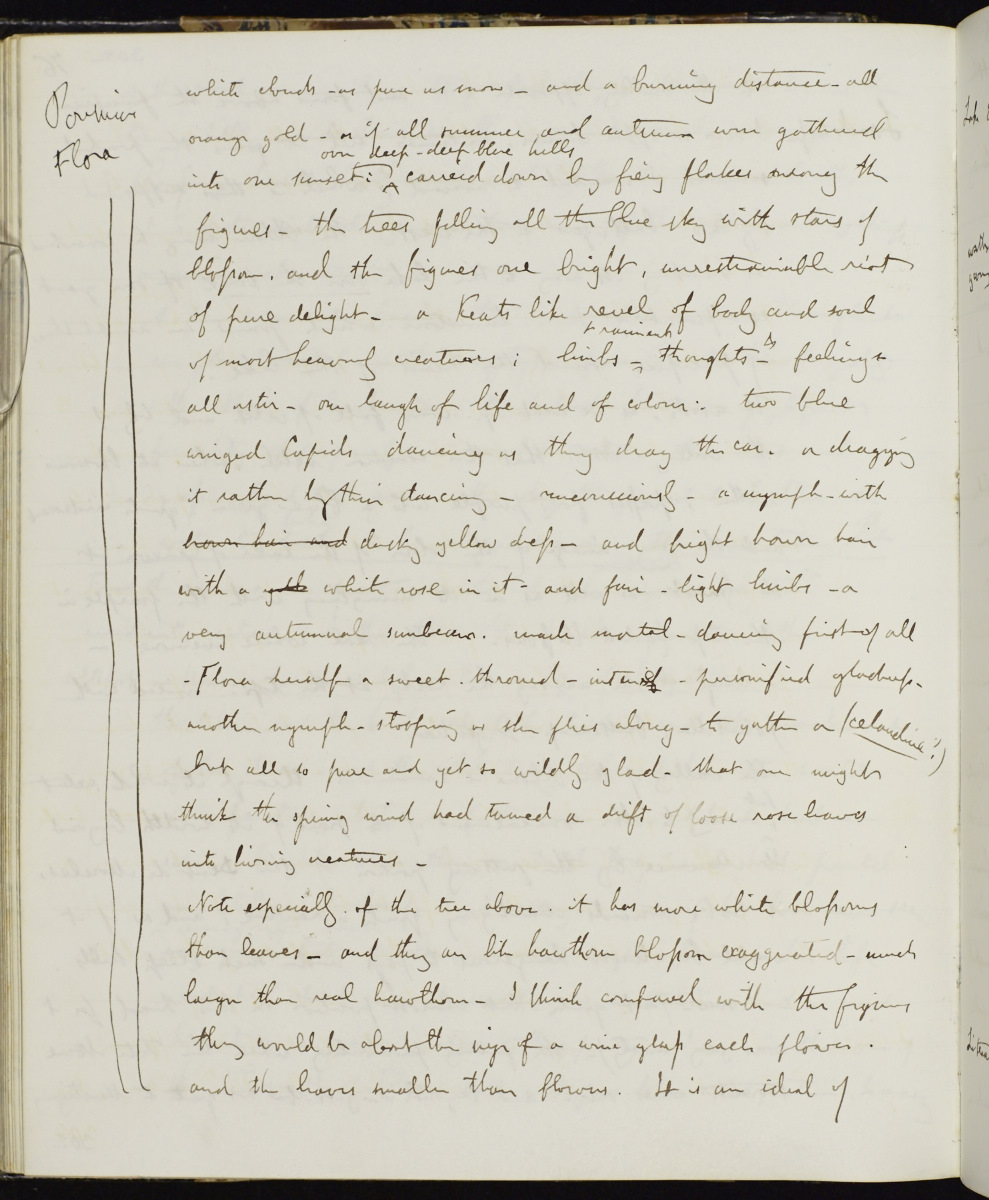 Poussin's
Flora
which clouds - as pure as snow - and a burning distance - all
orange gold - as if all summer and autumn were gathered
over deep - deep blue hills
into one sunset: carried down by fiery flakes among the
figures - the trees filling all the blue sky with stars of
blossom. and the figures one bright, unrestrainable riot
of pure delight - a Keats like revel of body and soul
+ raiment
of most heavenly creatures; limbs - thoughts - & feelings
all astir - one laugh of life and of colour: two blue
winged Cupids dancing as they drag the car. or dragging
it rather by their dancing - unconsciously - a nymph - with
brown hair and dusky yellow dress - and bright brown hair
with a white rose in it - and fair - light limbs - a
very autumnal sunbeam. made mortal - dancing first of all
- Flora herself a sweet. throned - intense - personified gladness.
another nymph - stooping as she flies along - to gather a (celandine?)
but all so pure and yet so wildly glad - that one might
think the spring wind had turned a drift of loose rose leaves
into living creatures -
Note especially. of the tree above. it has more white blossoms
than leaves - and they are like hawthorn blossom exaggerated - much
larger than real hawthorn - I think compared with the figures
they would be about the size of a wine glass each flower.
and the leaves smaller than flowers. It is an ideal of